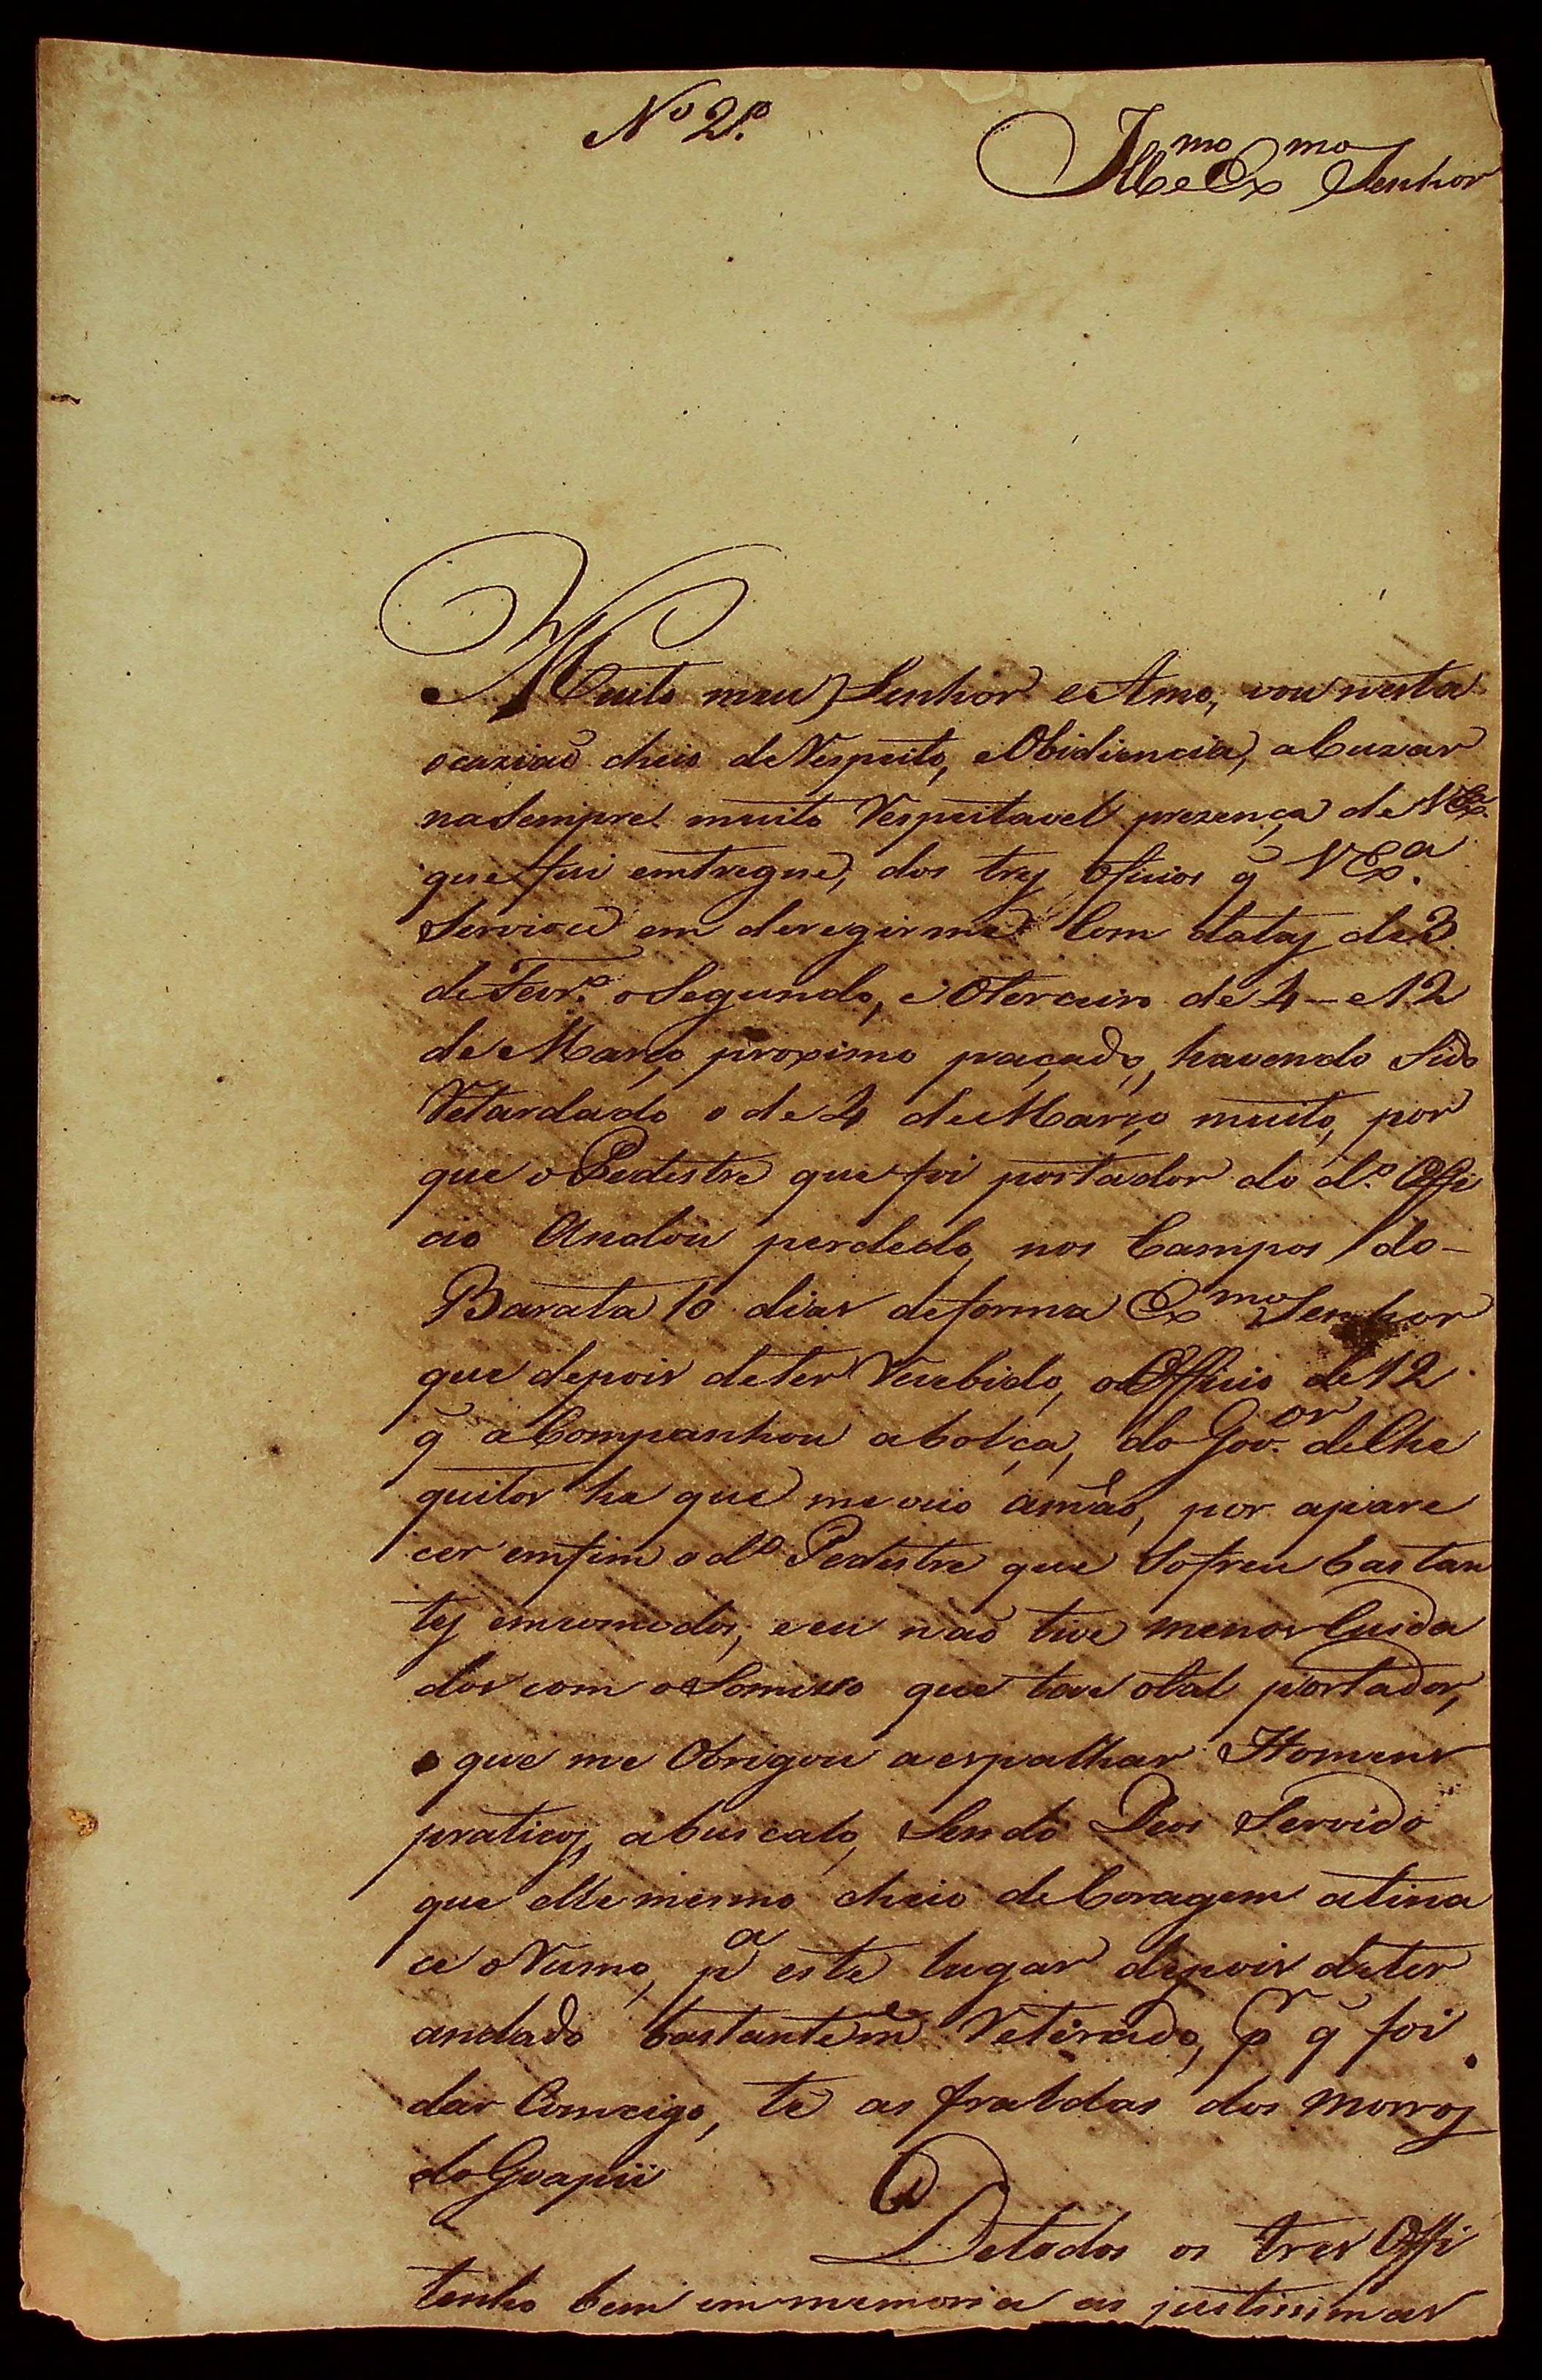 Nº 2º
Illmo e Exmo Senhor
Muito meu Senhor e Amo, vou nesta
ocaziaõ cheio de Respeito, e Obidiencia, acuzar
na sempre muito Respeitavel prezença de VExª
que fui emtregue, dos trez oficios q̃ VExª
Servioce em deregirme com datas de 3
de Fevrº o Segundo, e o terceiro de 4 - e 12
de Março proximo paçado, havendo Sido
Retardado o de 4 de Março muito, por
que o Pedestre que foi portador do dº Offi
cio Andou perdedo nos Campos do -
Barata 10 dias de forma Exmo Senhor
que depois de ter Recebido, o Officio de 12
q̃ acompanhou a bolça, do Govor de Che
quitos he que me veio amão, por apare
cer emfim o dº Pedestre que Sofreu bastan
tes emcomodos, e eu naõ tive menos Cuida
dos com o Somisso que teve o tal portador,
o que me Obrigou a espalhar Homens
praticos, a buscalo, Sendo Deos Servido
que elle mesmo cheio de Coragem atina
ce o Rumo, pª este lugar depois de ter
andado bastantemẽ Retirado, pr q̃ foi
dar Comcigo, té as fraldas dos morros
do Goapiï
De todos os tres Offi
tenho bem em memoria as justissimas